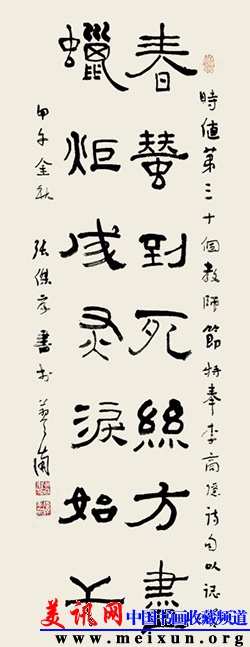 時值第三十個教師節特奉李商隱詩句以誌
春蠶到死絲方盡
蠟炬成灰淚始干
甲午金秋 張傑 書於
美讯网 中国书画收藏频道
www.meixun.org